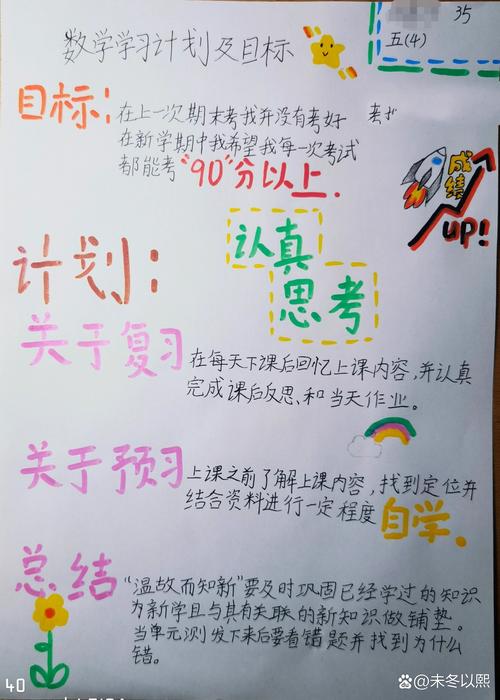 35
五(4)
数学学习计划及目标
目标:
在上一次期末考我并没有考好
在新学期中我希望我每一次考试
都能考“90”分以上.
成绩
up!
认真
思考
计划:
关于复习
在每天下课后回忆上课内容,并认真
完成课后反思、和当天作业。
关于预习
上课之前了解上课内容,找到定位并
结合资料进行一定程度自学.
总结
“温故而知新”要及时巩固已经学过的知识
为新学且与其有关联的新知识做铺垫。
当单元测发下来后要看错题并找到为什么
错。
40
@未冬以熙